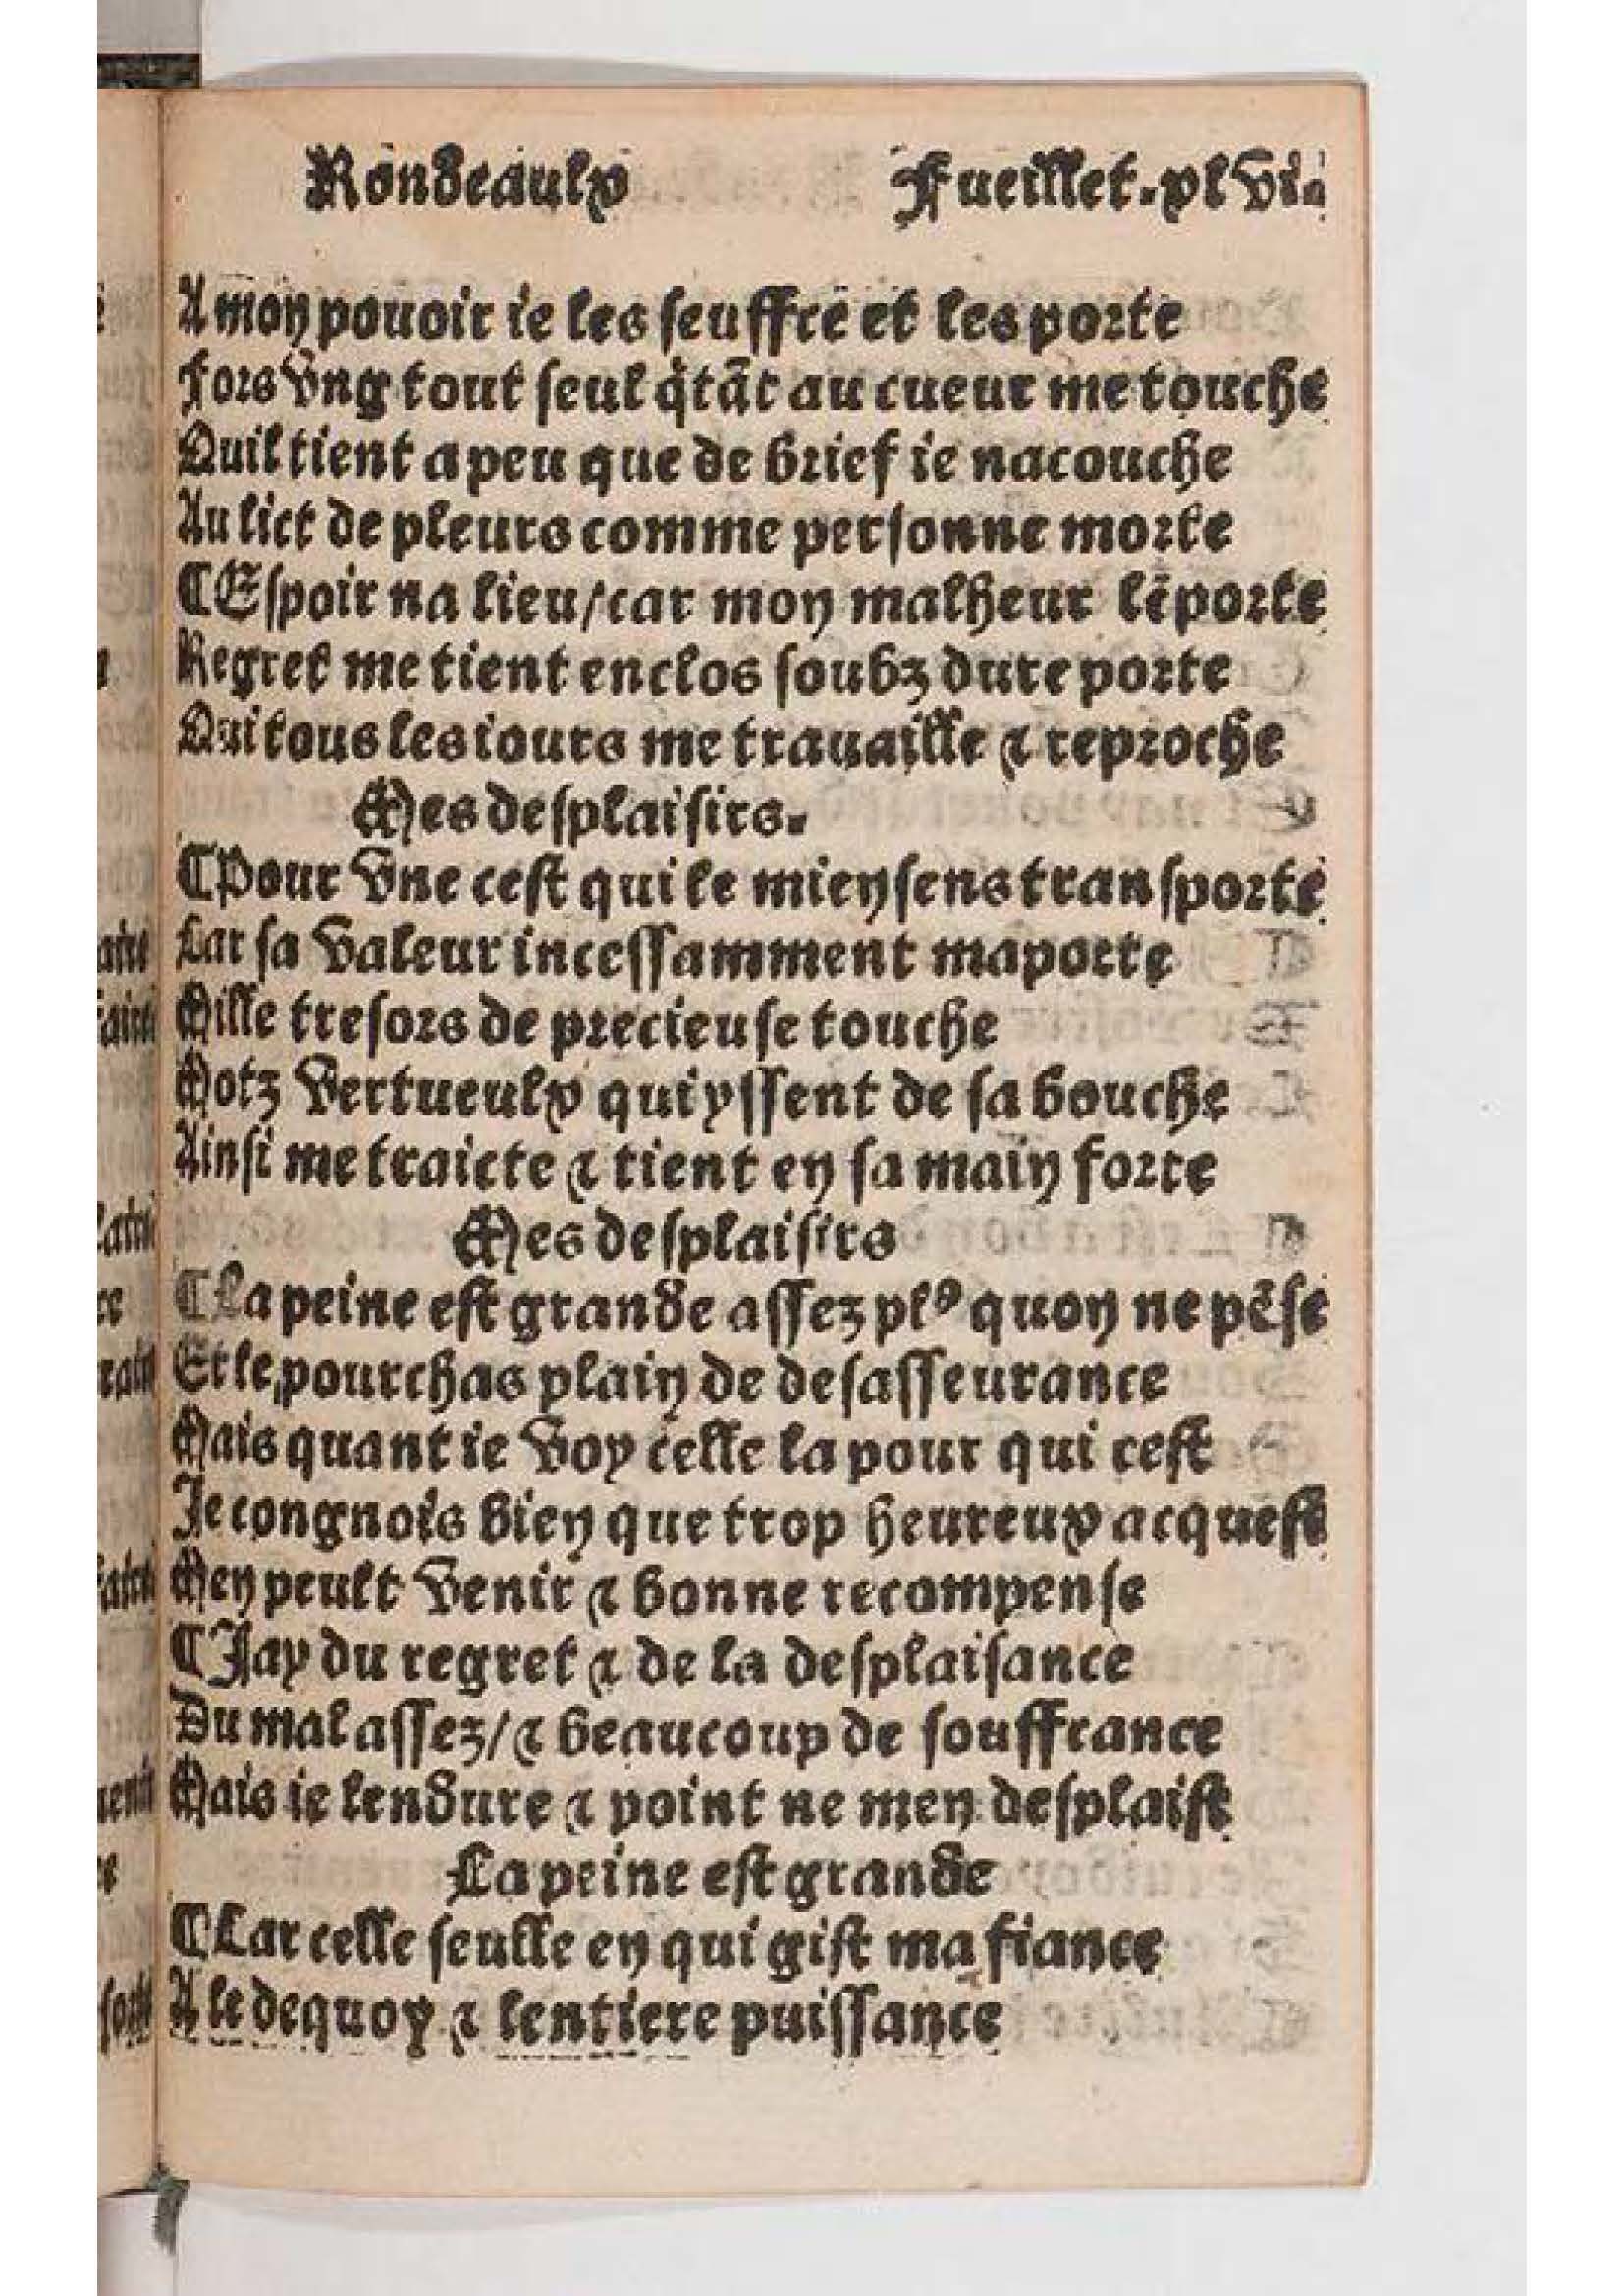 Rondeaulx Fueillet.xlvii
A mon pouoir ie les seuffre et les porte
Fors vng tout seul q̃ tãt au cueur me touche
Quil tient a peu que de brief ie nacouche
Au lict de pleurs comme personne morte
¶ Espoir na lieu/car mon malheur lẽporte
Regret me tient enclos soubz dure porte
Qui tous les iours me trauaille & reproche
Mes desplaisirs.
¶ Pour vne cest qui le mien sens transporte
Car sa valeur incessamment maporte
Mille tresors de precieuse touche
Motz vertueulx qui yssent de sa bouche
Ainsi me traicte & tient en sa main forte
Mes desplaisirs
¶ La peine est grande assez plꝰ quon ne pẽse
Et le pourchas plain de desasseurance
Mais quant ie voy celle la pour qui cest
Je congnois bien que trop heureux acquest
Men peult venir & bonne recompense
¶ Jay du regret & de la desplaisance
Du mal assez/& beaucoup de souffrance
Mais ie lendure & point ne men desplaist
La peine est grande
¶ Car celle seulle en qui gist ma fiance
A le dequoy & lentiere puissance